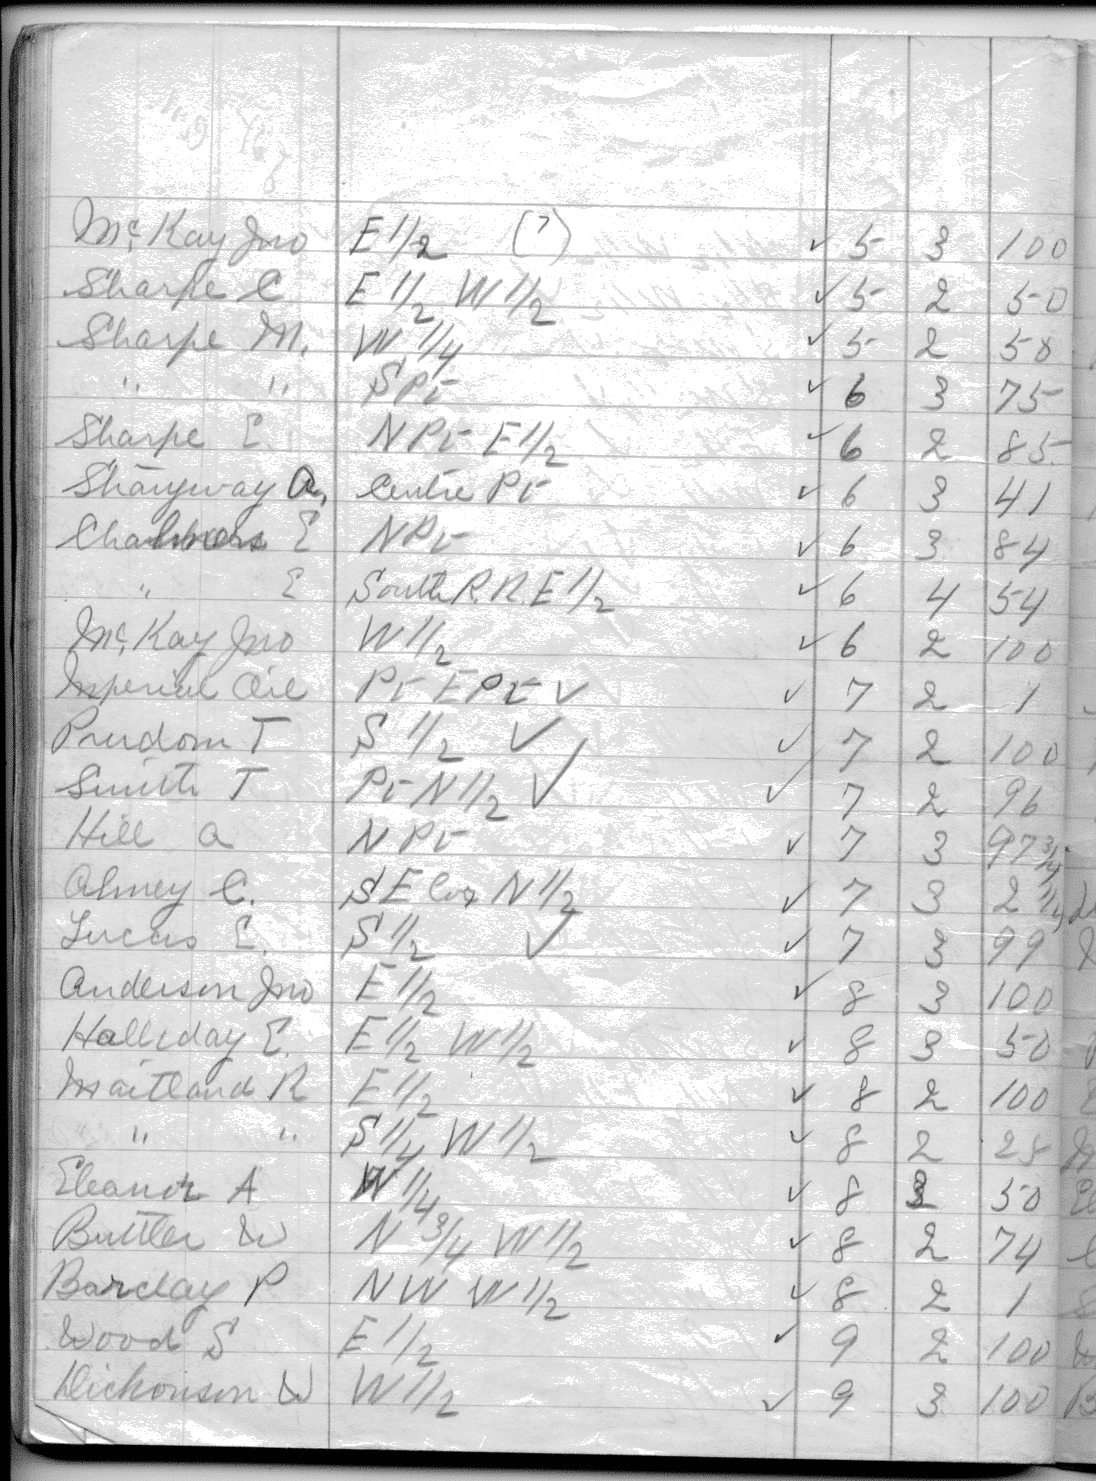 McKay Jno E 1/2 (?) ✓ 5 3 100
Sharpe C E 1/2 W 1/2 ✓ 5 2 50
Sharpe M. W 1/4 ✓ 5 2 50
" " S Pt ✓ 6 3 75
Sharpe E. N Pt E 1/2 ✓ 6 2 85
A, Centre Pt ✓ 6 3 41
Chambers E N Pt ✓ 6 3 84
" E South R.R E 1/2 ✓ 6 4 54
McKay Jno W 1/2 ✓ 6 2 100
Imperial Oil Pt E Pt ✓ ✓ 7 2 1
Prudom T S 1/2 ✓ ✓ 7 2 100
Smith T Pt N 1/2 ✓ ✓ 7 2 96
Hill a N Pt ✓ 7 3 97 3/4
Almey C. S E Cor N 1/2 ✓ 7 3 2 1/4
Lucas E. S 1/2 ✓ ✓ 7 3 99
Anderson Jno E 1/2 ✓ 8 3 100
Halliday E. E 1/2 W 1/2 ✓ 8 3 50
Maitland R E 1/2 ✓ 8 2 100
" " S 1/4 W 1/2 ✓ 8 2 25
Eleanor A W 1/4 ✓ 8 3 50
Buttler W N 3/4 W 1/2 ✓ 8 2 74
Barclay P N W W 1/2 ✓ 8 2 1
Wood S E 1/2 ✓ 9 2 100
Dickonson W W 1/2 ✓ 9 3 100